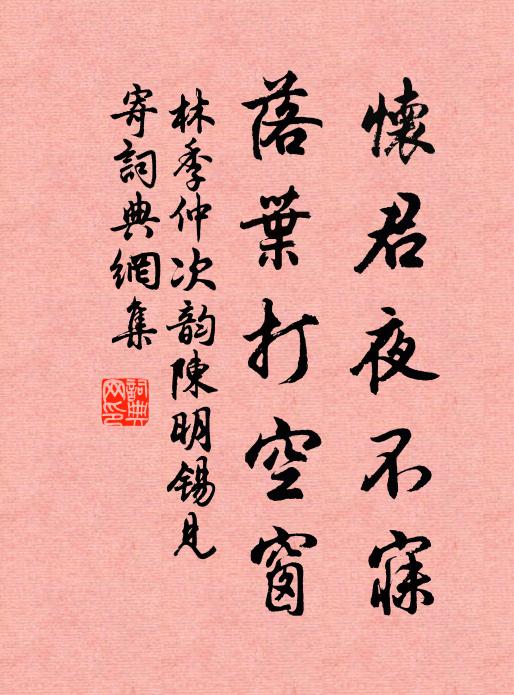 懷君夜不寐
落葉打空窗
林季仲次韵陳明錫見
寄詞典網集
詞典网印